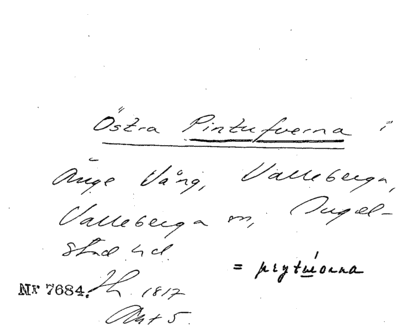 Östra Pintufverna i
Änge Vång, Valleberga,
Valleberga sn, Ingel-
stad hd.
= prytŵorna
Nr 7684. Lh. 1817
Akt 5.